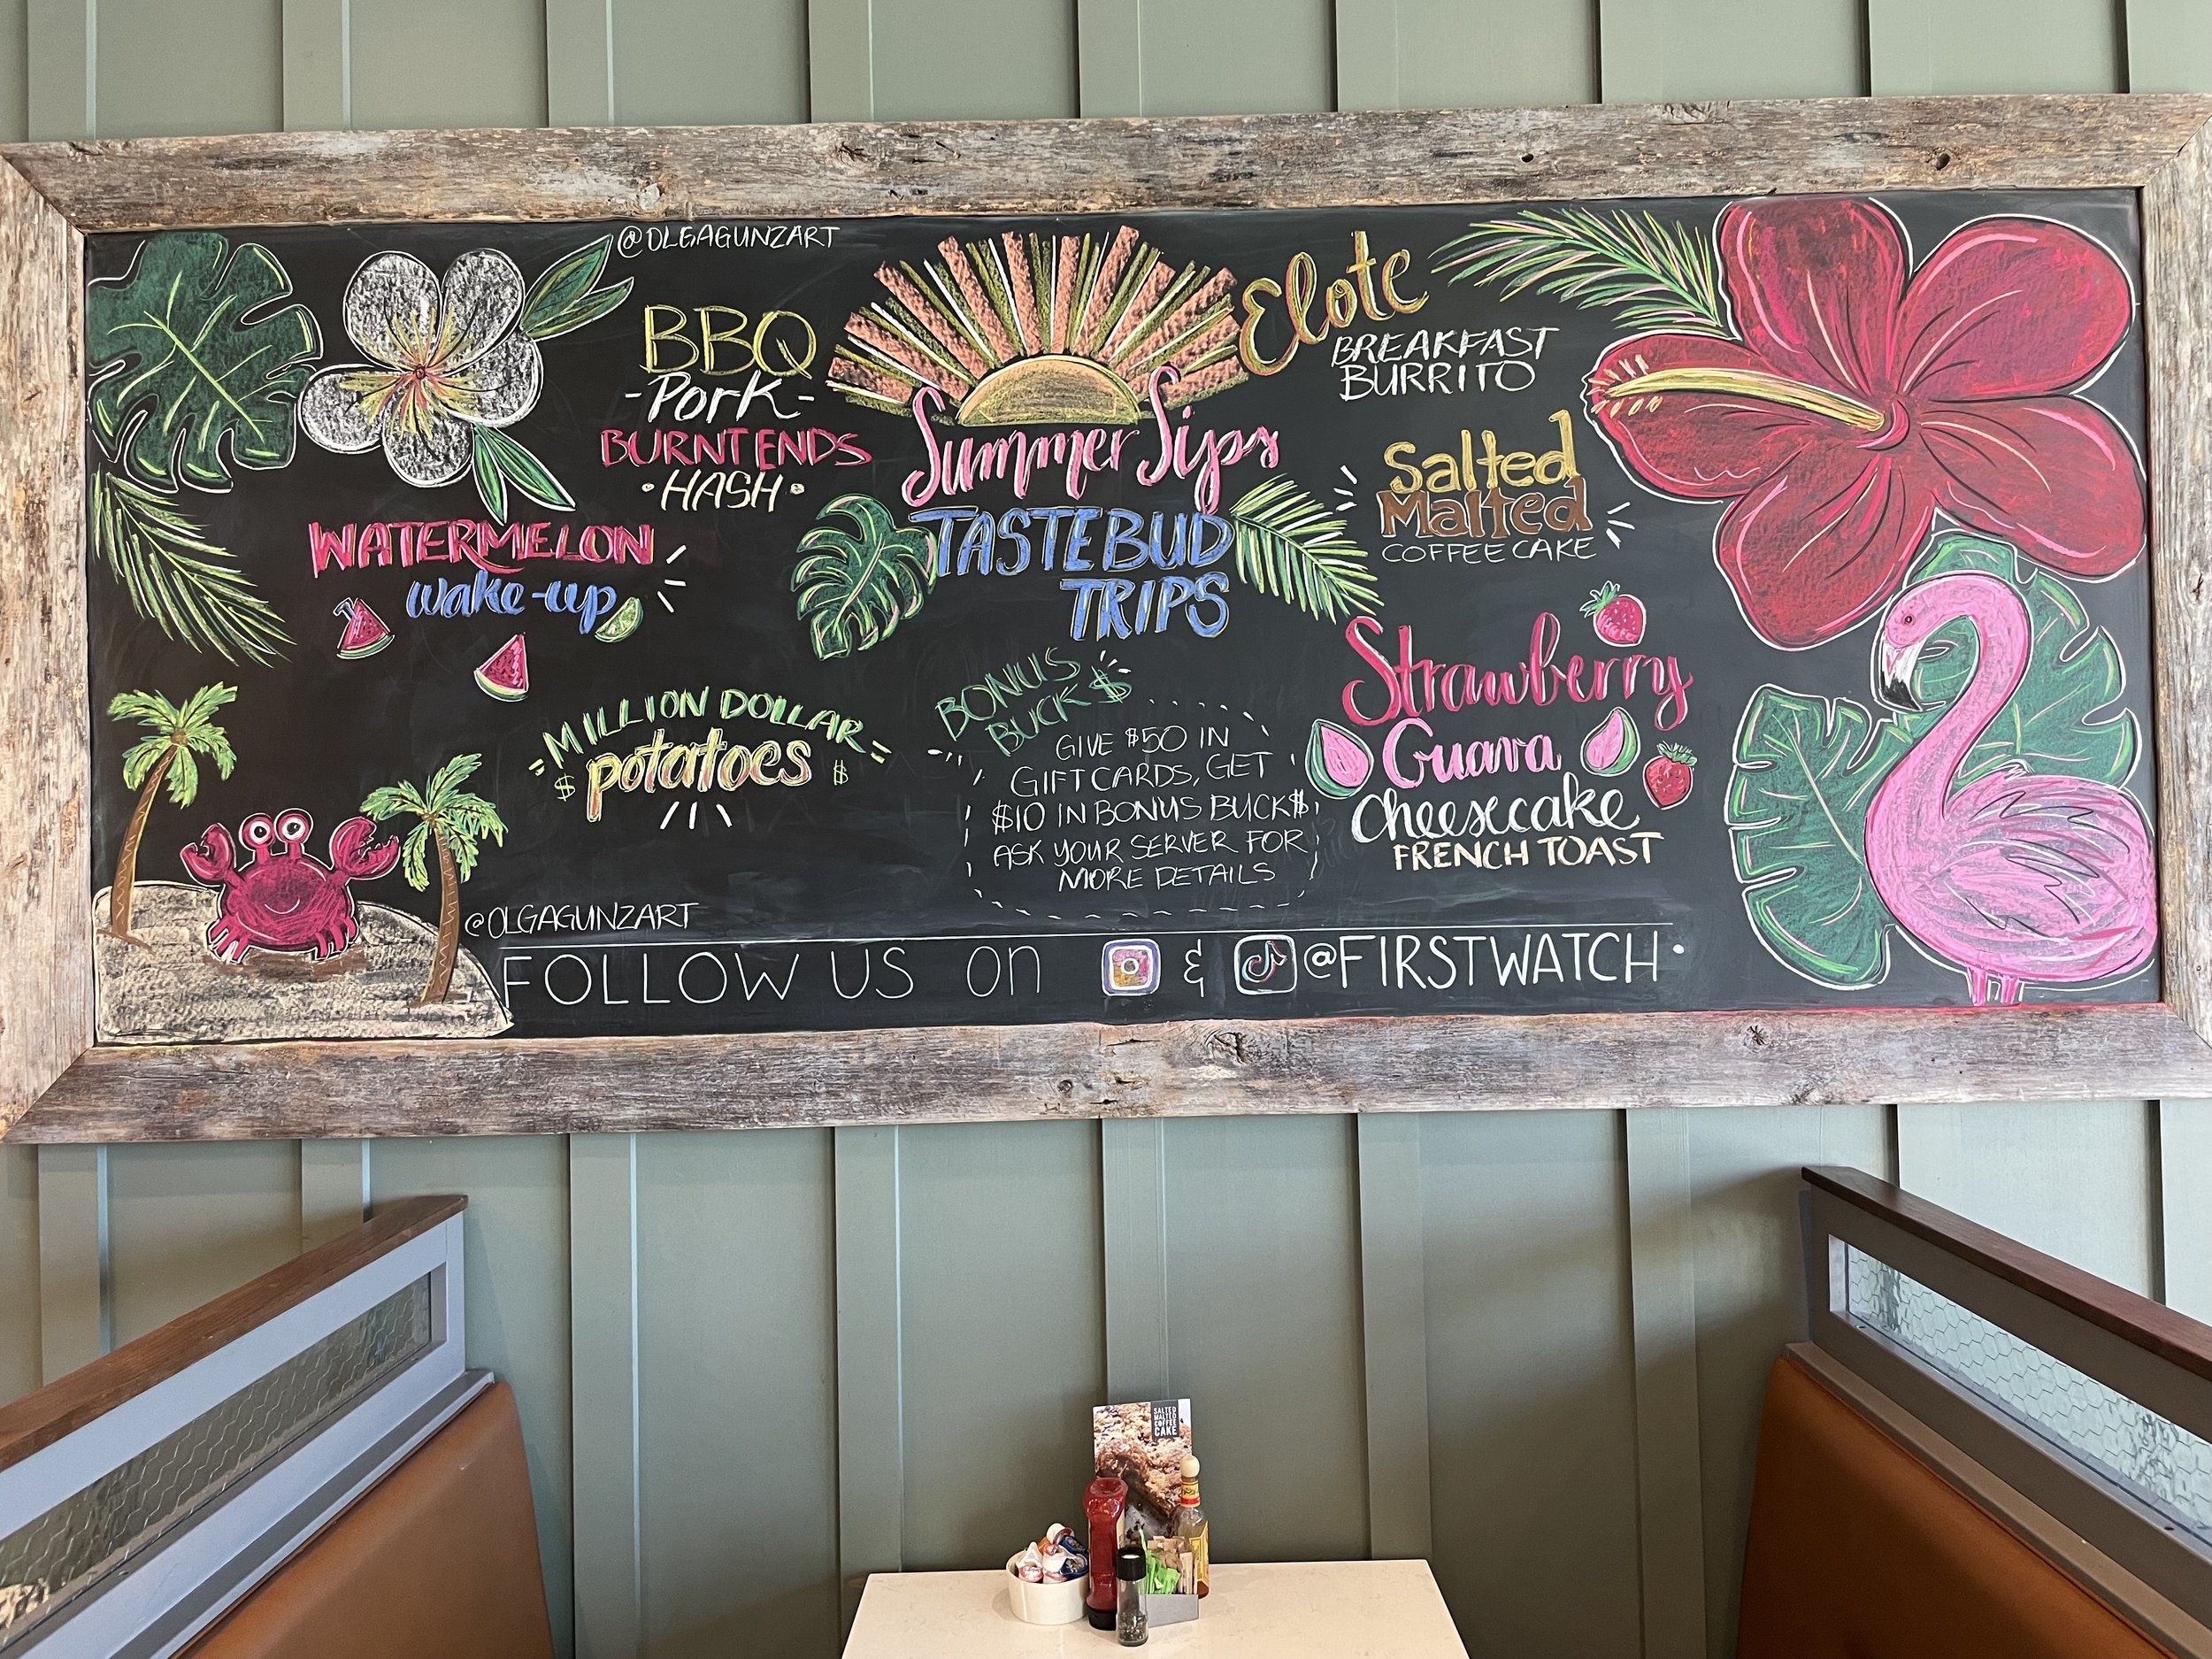 @OLGAGUNZART
BBQ
-Pork-
BURNT ENDS
•HASH•
WATERMELON
wake-up
MILLION DOLLAR
$ potatoes $
Summer Sips
TASTEBUD
TRIPS
BONUS
BUCK$
GIVE $50 IN
GIFT CARDS, GET
$10 IN BONUS BUCK$
ASK YOUR SERVER FOR
MORE DETAILS
Elote
BREAKFAST
BURRITO
Salted
Malted
COFFEE CAKE
Strawberry
Guava
Cheesecake
FRENCH TOAST
@OLGAGUNZART
FOLLOW US on & @FIRSTWATCH•
SALTED
MALTED
COFFEE
CAKE